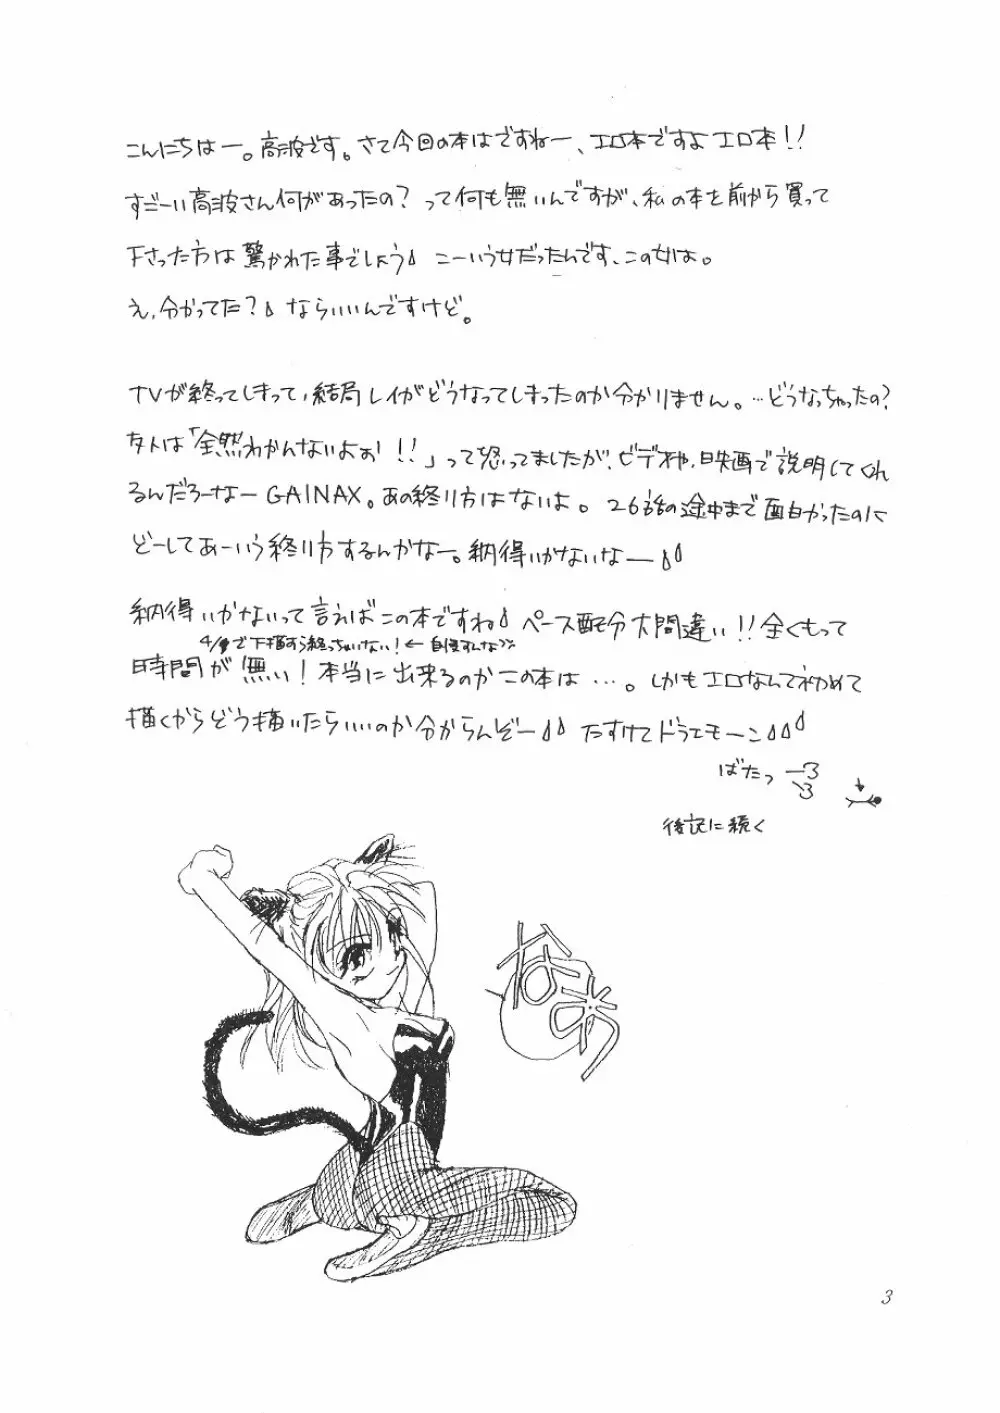 こんにちはー。高波です。さて今回の本はですねー、エロ本ですよエロ本!!
すごーい高波さん何があったの?って何も無いんですが、私の本を前から買って
下さった方は驚かれた事でしょう こーいう女だったんです、この女は。
え,分かってた? ならいいんですけど。
TVが終ってしまって,結局レイがどうなってしまったのか分かりません。…どうなっちゃったの?
友人は「全然わかんないよぉ!!」って怒ってましたが、ビデオや,映画で説明してくれ
るんだろーなーGAINAX。あの終り方はないよ。26話の途中まで面白かったのに
どーしてあーいう終り方するんかなー。納得いかないなー
納得いかないって言えばこの本ですね ペース配分大間違い!!全くもって
で下描すら終っちゃいない!← 自慢すんな
時間が無い!本当に出来るのかこの本は…。しかもエロなんて初めて
描くからどう描いたらいいのか分からんぞー たすけてドラえモーン
ばたっ
後記に続く
なあ
3